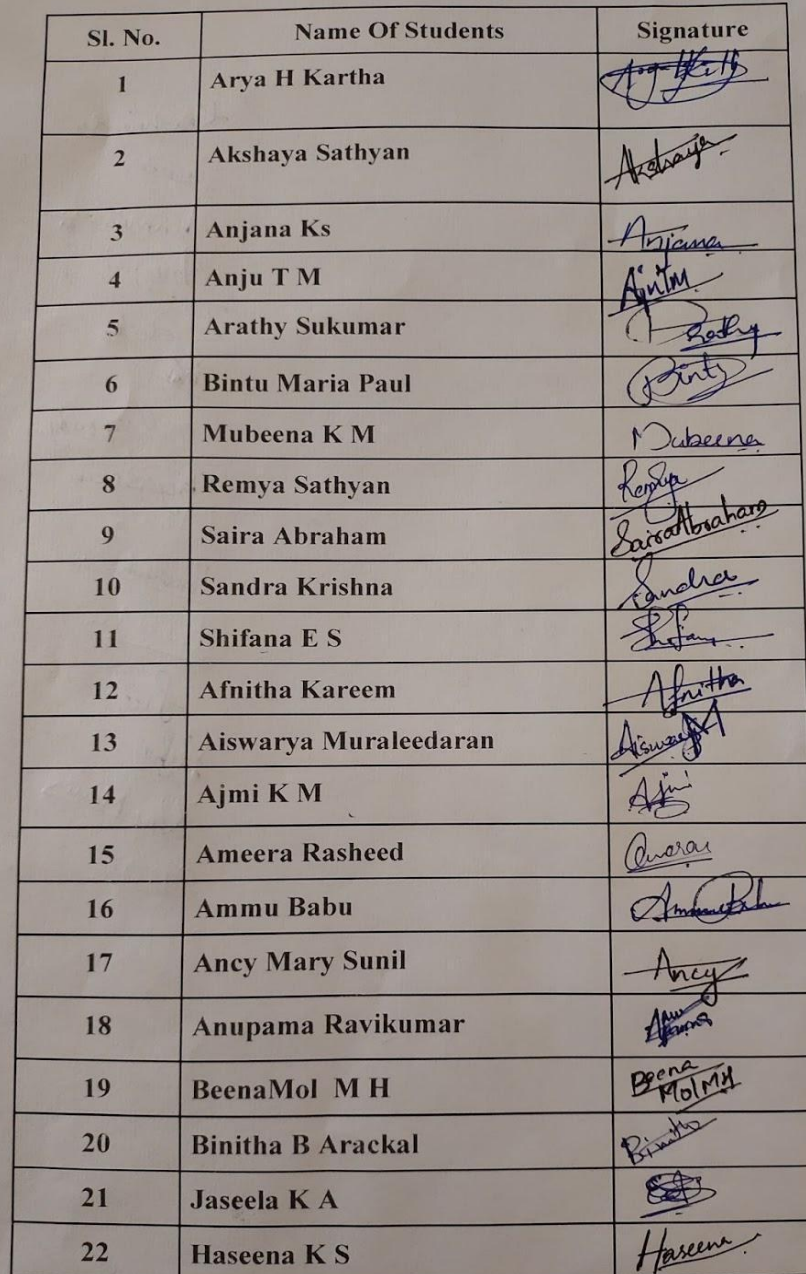 Sl. No. Name Of Students Signature
1 Arya H Kartha
2 Akshaya Sathyan Akshaya
3 Anjana Ks Anjana
4 Anju T M
5 Arathy Sukumar
6 Bintu Maria Paul Bintu
7 Mubeena K M Mubeena
8 Remya Sathyan Remya
9 Saira Abraham Saira Abraham
10 Sandra Krishna Sandra
11 Shifana E S
12 Afnitha Kareem Afnitha
13 Aiswarya Muraleedaran
14 Ajmi K M Ajmi
15 Ameera Rasheed
16 Ammu Babu
17 Ancy Mary Sunil Ancy
18 Anupama Ravikumar
19 BeenaMol M H Beena
MolMH
20 Binitha B Arackal Binitha
21 Jaseela K A
22 Haseena K S Haseena